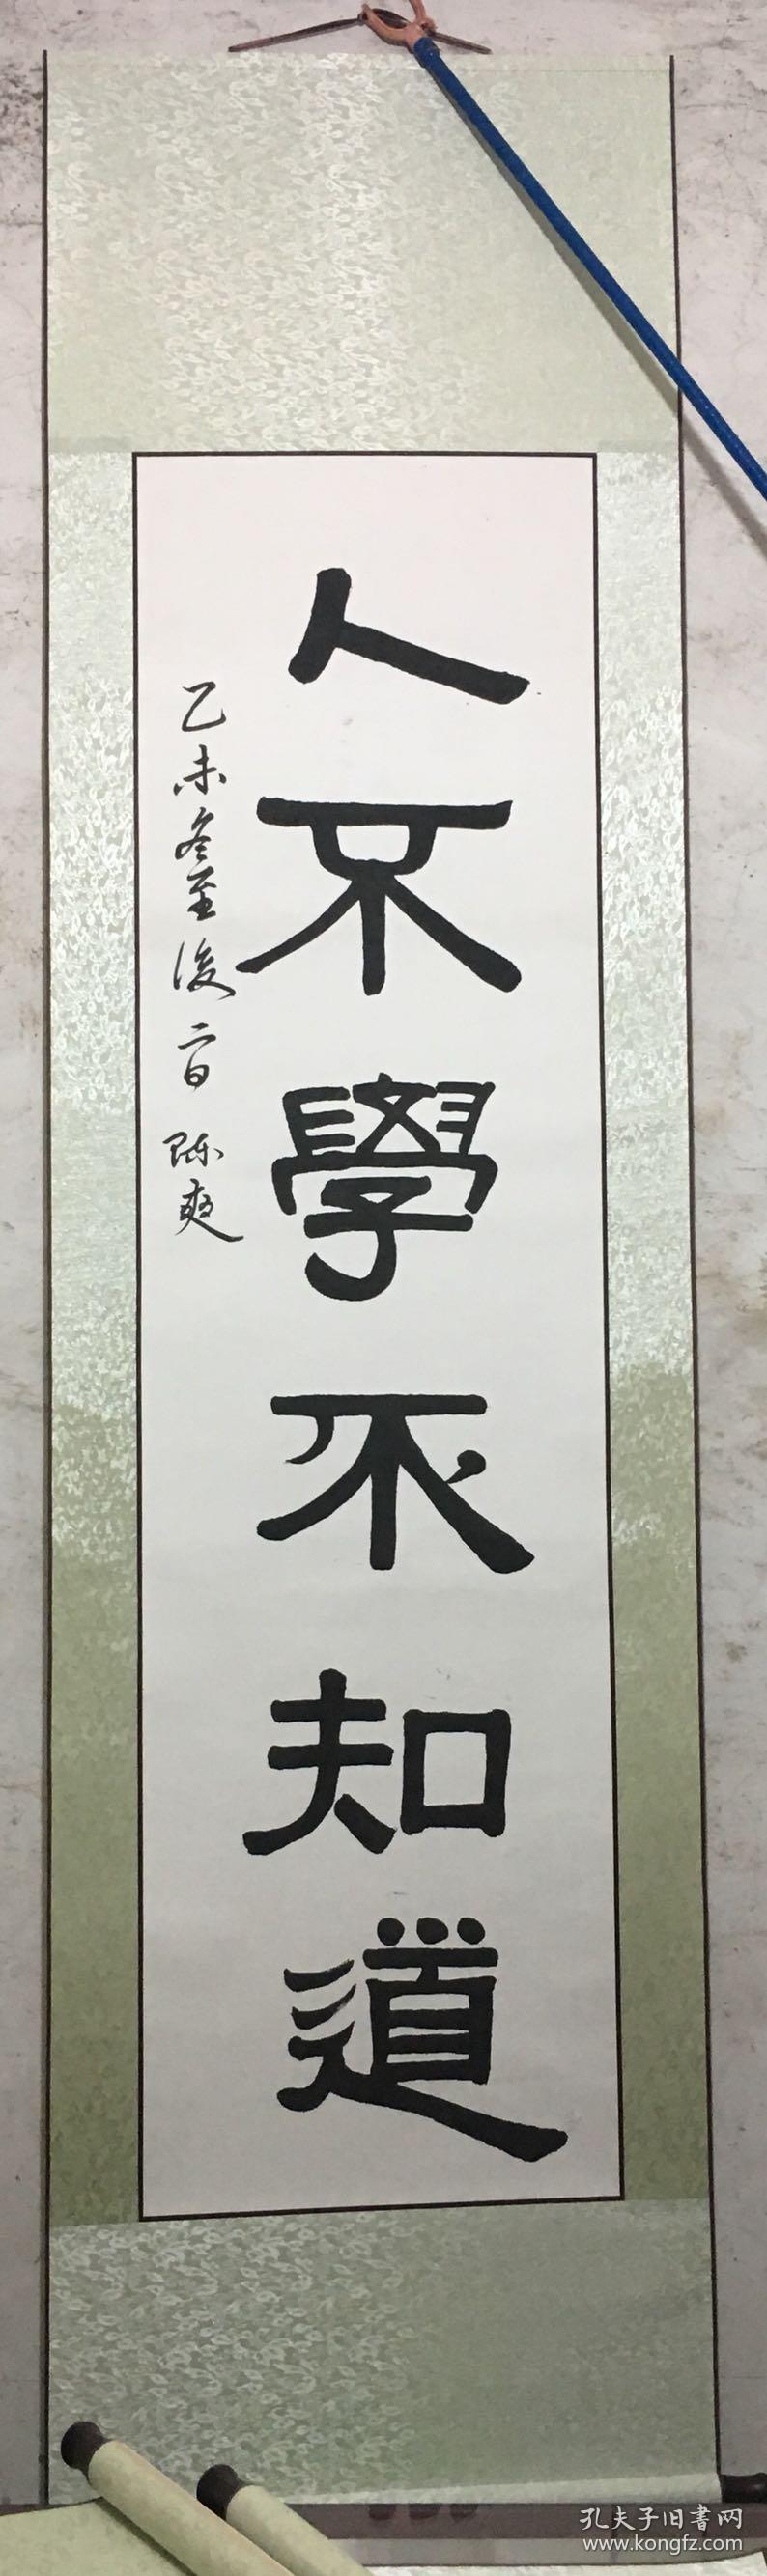 人不學不知道
乙未冬至後二日 陈爽
孔夫子旧書网
www.kongfz.com